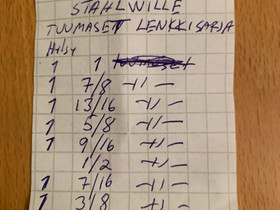 STAHLWILLE
TUUMASET LENKKISARJA
1 1
1 7/8 -11-
1 13/16 -11-
1 5/8 -11-
1 9/16 -11-
1/2 -11-
1 7/16 -11-
1 3/8 -11-